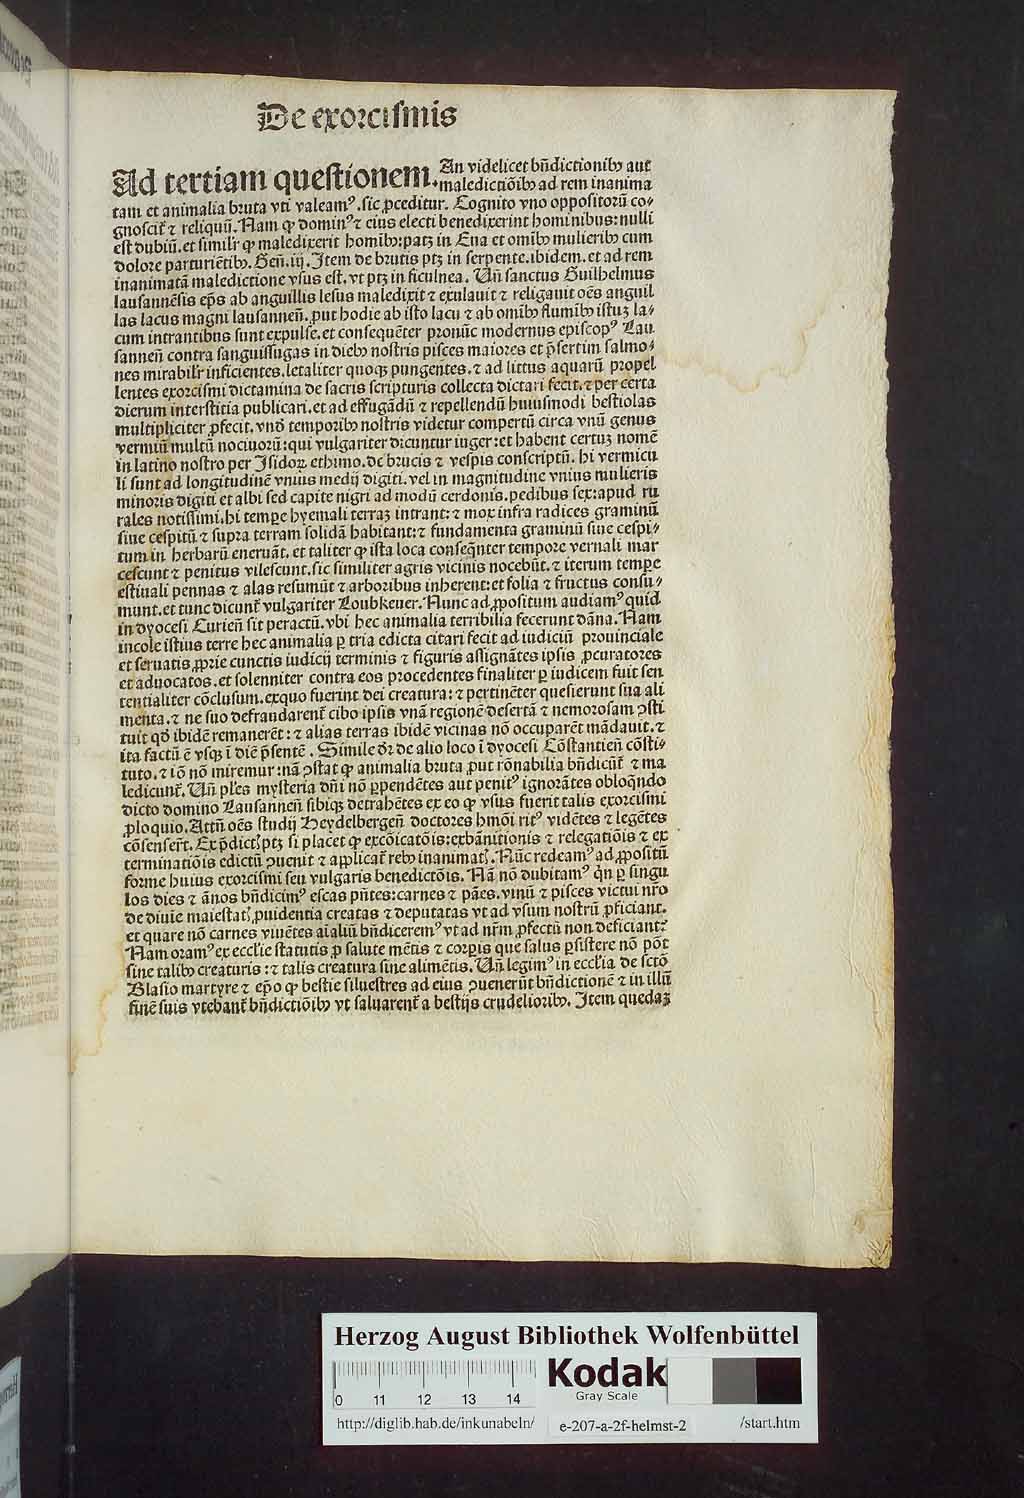 De exorcismis
Ad tertiam questionem. An videlicet bñdictionibꝫ aut
maledictiõibꝫ ad rem inanima
tam et animalia bruta vti valeamꝰ. sic ꝓceditur. Cognito vno oppositorũ co-
gnoscit̃ ⁊ reliquũ. Nam ꝙ dominꝰ ⁊ eius electi benedixerint hominibus: nulli
est dubiũ. et simil̃r ꝙ maledixerit homibꝫ: patꝫ in Eua et omĩbꝫ mulieribꝫ cum
dolore parturiẽtibꝫ. Geñ. iij. Item de brutis ptꝫ in serpente. ibidem. et ad rem
inanimatã maledictione vsus est. vt ptꝫ in ficulnea. Uñ sanctus Guilhelmus
lausannẽsis ep̃s ab anguillis lesus maledixit ⁊ exulauit ⁊ religauit oẽs anguil
las lacus magni lausanneñ. ꝓut hodie ab isto lacu ⁊ ab omĩbꝫ flumĩbꝫ istuꝫ la-
cum intrantibus sunt expulse. et consequẽter pronũc modernus episcopꝰ Lau
sanneñ contra sanguissugas in diebꝫ nostris pisces maiores et p̃sertim salmo-
nes mirabil̃r inficientes. letaliter quoqꝫ pungentes. ⁊ ad littus aquarũ propel
lentes exorcismi dictamina de sacris scripturis collecta dictari fecit. ⁊ per certa
dierum interstitia publicari. et ad effugãdũ ⁊ repellendũ huiusmodi bestiolas
multipliciter ꝓfecit. vnõ temporibꝫ nostris videtur compertũ circa vnũ genus
vermiũ multũ nociuorũ: qui vulgariter dicuntur iuger: et habent certuꝫ nomẽ
in latino nostro per Isidoꝝ ethimo. de brucis ⁊ vespis conscriptũ. hi vermicu
li sunt ad longitudinẽ vnius medij digiti. vel in magnitudine vnius mulieris
minoris digiti et albi sed capite nigri ad modũ cerdonis. pedibus sex: apud ru
rales notissimi. hi temꝑe hyemali terraꝫ intrant: ⁊ mox infra radices graminũ
siue cespitũ ⁊ supra terram solidã habitant: ⁊ fundamenta graminũ siue cespi-
tum in herbarũ eneruãt. et taliter ꝙ ista loca conseq̃nter tempore vernali mar
cescunt ⁊ penitus vilescunt. sic similiter agris vicinis nocebũt. ⁊ iterum temꝑe
estiuali pennas ⁊ alas resumũt ⁊ arboribus inherent: et folia ⁊ fructus consu-
munt. et tunc dicunt̃ vulgariter Loubkeuer. Nunc ad ꝓpositum audiamꝰ quid
in dyocesi Curieñ sit peractũ. vbi hec animalia terribilia fecerunt dãna. Nam
incole istius terre hec animalia ꝑ tria edicta citari fecit ad iudiciũ prouinciale
et seruatis ꝓprie cunctis iudicij terminis ⁊ figuris assignãtes ipsis ꝓcuratores
et aduocatos. et solenniter contra eos procedentes finaliter ꝑ iudicem fuit sen
tentialiter cõclusum. exquo fuerint dei creatura: ⁊ pertinẽter quesierunt sua ali
menta. ⁊ ne suo defraudarent̃ cibo ipsis vnã regionẽ desertã ⁊ nemorosam ꝯsti
tuit qd̃ ibidẽ remanerẽt: ⁊ alias terras ibidẽ vicinas nõ occuparẽt mãdauit. ⁊
ita factũ ẽ vsqꝫ ĩ diẽ p̃sentẽ. Simile dr̃ de alio loco ĩ dyocesi Cõstantieñ cõsti-
tuto. ⁊ iõ nõ miremur: nã ꝯstat ꝙ animalia bruta ꝓut rõnabilia bñdicũt̃ ⁊ ma
ledicunt̃. Uñ pl̃es mysteria dñi nõ ꝑpendẽtes aut penitꝰ ignorãtes obloq̃ndo
dicto domino Lausanneñ sibiqꝫ detrahẽtes ex eo ꝙ vsus fuerit talis exorcismi
ꝓloquio. Attñ oẽs studij Heydelbergeñ doctores hmõi ritꝰ vidẽtes ⁊ legẽtes
cõsenser̃t. Ex p̃dictꝭ ptꝫ si placet ꝙ excõicatõis: exbãnitionis ⁊ relegatiõis ⁊ ex
terminatiõis edictũ ꝯuenit ⁊ applicat̃ rebꝫ inanimatꝭ. Nũc redeamꝰ ad ꝓpositũ
forme huius exorcismi seu vulgaris benedictõis. Nã nõ dubitamꝰ q̃n ꝑ singu
los dies ⁊ ãnos bñdicimꝰ escas p̃ntes: carnes ⁊ pães. vinũ ⁊ pisces victui nr̃o
de diuĩe maiestatꝭ ꝓuidentia creatas ⁊ deputatas vt ad vsum nostrũ ꝓficiant.
et quare nõ carnes viuẽtes aĩaliũ bñdiceremꝰ vt ad nr̃m ꝓfectũ non deficiant?
Nam oramꝰ ex eccl̃ie statutis ꝓ salute mẽtis ⁊ corꝑis que salus ꝑsistere nõ põt
sine talibꝫ creaturis: ⁊ talis creatura sine alimẽtis. Uñ legimꝰ in eccl̃ia de sctõ
Blasio martyre ⁊ ep̃o ꝙ bestie siluestres ad eius ꝯuenerũt bñdictionẽ ⁊ in illũ
finẽ suis vtebant̃ bñdictiõibꝫ vt saluarent̃ a bestijs crudelioribꝫ. Item quedaꝫ
Herzog August Bibliothek Wolfenbüttel
0 11 12 13 14
Kodak
Gray Scale
http://diglib.hab.de/inkunabeln/ e-207-a-2f-helmst-2 /start.htm